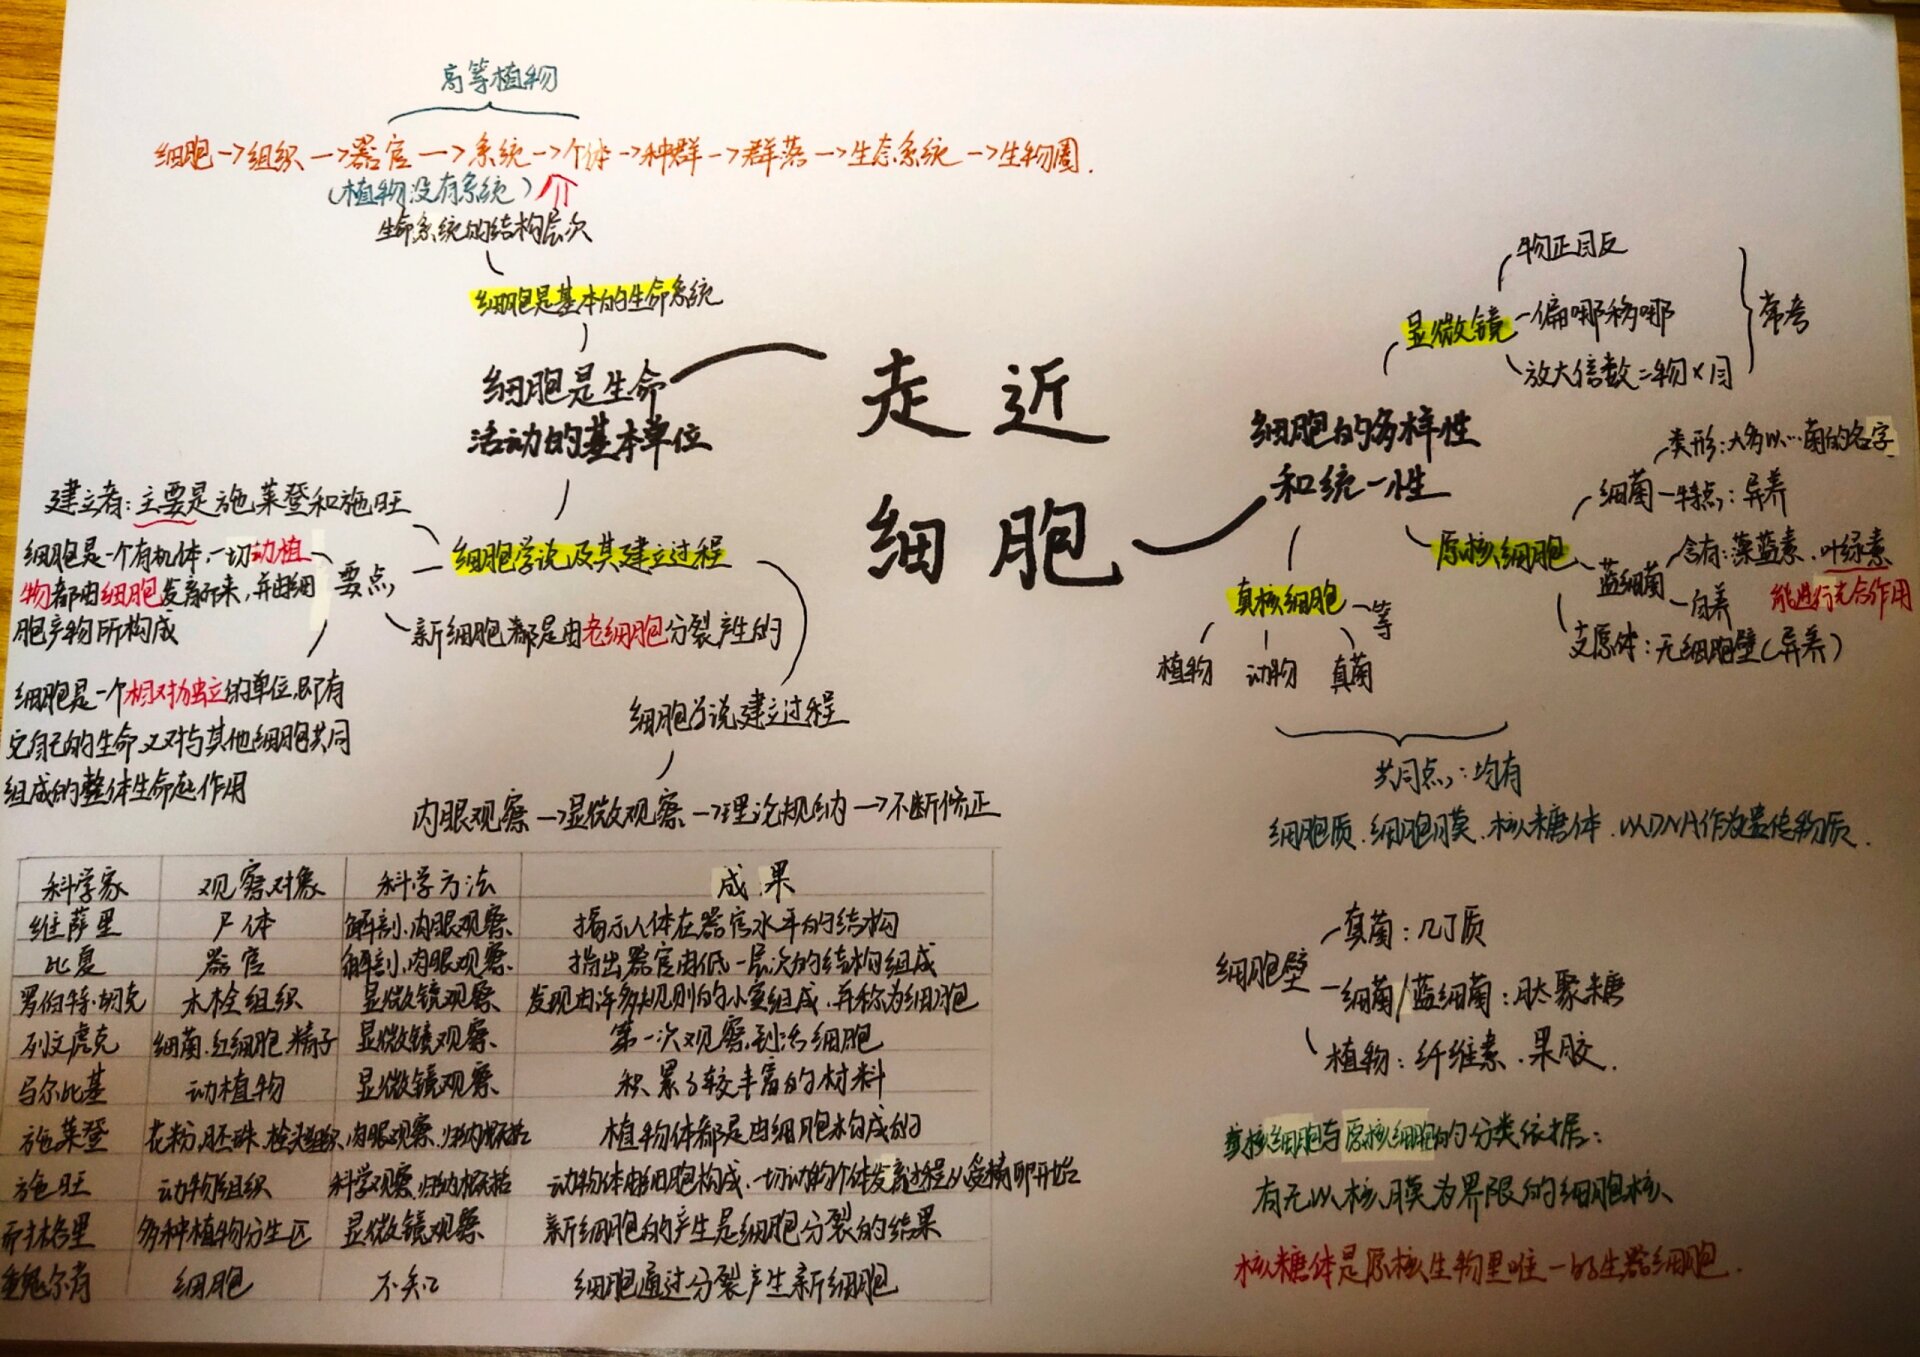 高等植物
细胞→组织→器官→系统→个体→种群→群落→生态系统→生物圈.
(植物没有系统)
生命系统的结构层次
细胞是基本的生命系统
细胞是生命
活动的基本单位
走近
细胞
建立者:主要是施莱登和施旺
细胞是一个有机体,一切动植
物都由细胞发育而来,并由细
胞产物所构成
要点
细胞学说及其建立过程
新细胞都是由老细胞分裂产生的
细胞是一个相对独立的单位,即有
它自己的生命又对与其他细胞共同
组成的整体生命起作用
细胞学说建立过程
内眼观察→显微观察→理论规纳→不断修正
科学家 观察对象 科学方法 成果
维萨里 尸体 解剖、内眼观察 揭示人体在器官水平的结构
比夏 器官 解剖、内眼观察 指出器官由低一层次的结构组成
罗伯特·胡克 木栓组织 显微镜观察 发现由许多规则的小室组成,并称为细胞
列文虎克 细菌.红细胞.精子 显微镜观察 第一次观察到活细胞
马尔比基 动植物 显微镜观察 积累了较丰富的材料
施莱登 花粉.胚珠. 内眼观察.归纳概括 植物体都是由细胞构成的
施旺 动物组织 科学观察.归纳概括 动物体由细胞构成.一切动物个体发育过程从受精卵开始
耐格里 多种植物分生区 显微镜观察 新细胞的产生是细胞分裂的结果
魏尔肖 细胞 不知 细胞通过分裂产生新细胞
细胞的多样性
和统一性
显微镜
物正目反
偏哪移哪
放大倍数=物×目
常考
原核细胞
细菌
类形:大多以…菌的名字
特点:异养
蓝细菌
含有:藻蓝素.叶绿素
能进行光合作用
自养
支原体:无细胞壁(异养)
真核细胞 等
植物 动物 真菌
共同点:均有
细胞质.细胞膜.核糖体.以DNA作为遗传物质.
细胞壁
真菌:几丁质
细菌/蓝细菌:肽聚糖
植物:纤维素.果胶.
真核细胞与原核细胞的分类依据:
有无以核膜为界限的细胞核
核糖体是原核生物里唯一的生器细胞.